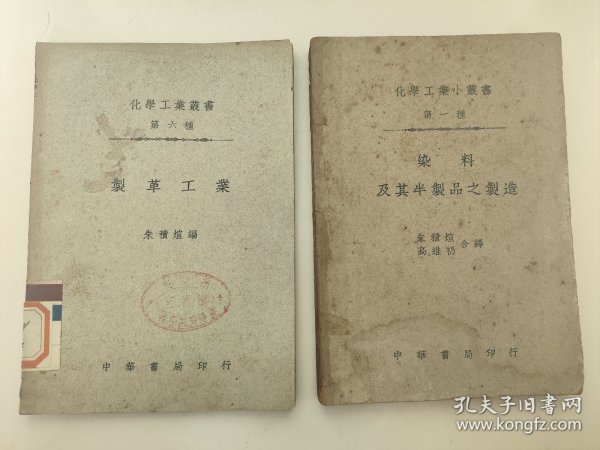 化學工業叢書
第六種
製革工業
朱積煊編
中華書局印行
化學工業小叢書
第一種
染料
及其半製品之製造
朱積煊
高維礽
合譯
中華書局印行
孔夫子旧书网
www.kongfz.com